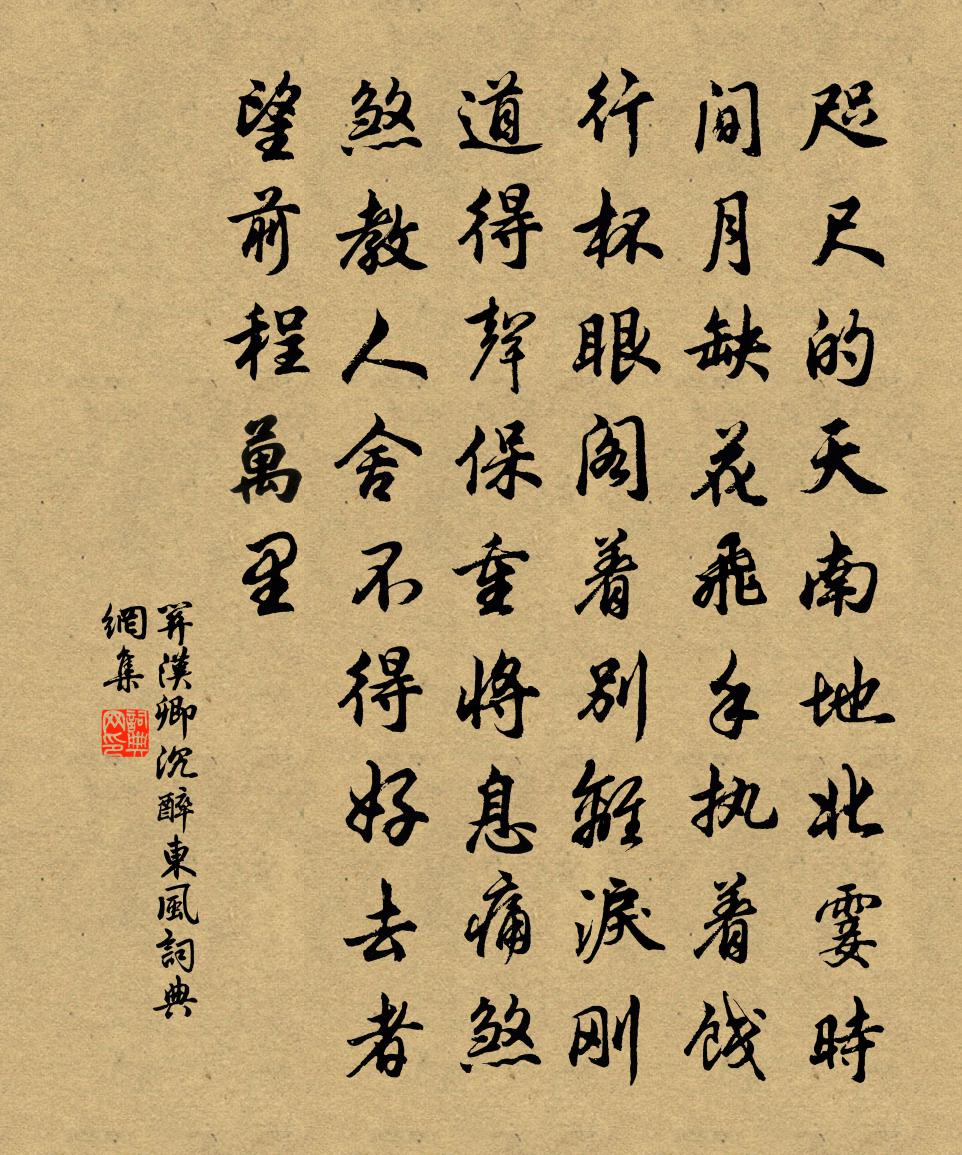 咫尺的天南地北霎時
間月缺花飛手执着餞
行杯眼阁着別離淚刚
道得聲保重将息痛煞
煞教人舍不得好去者
望前程萬里
关漢卿沉醉東風詞典
網集
詞典
网印